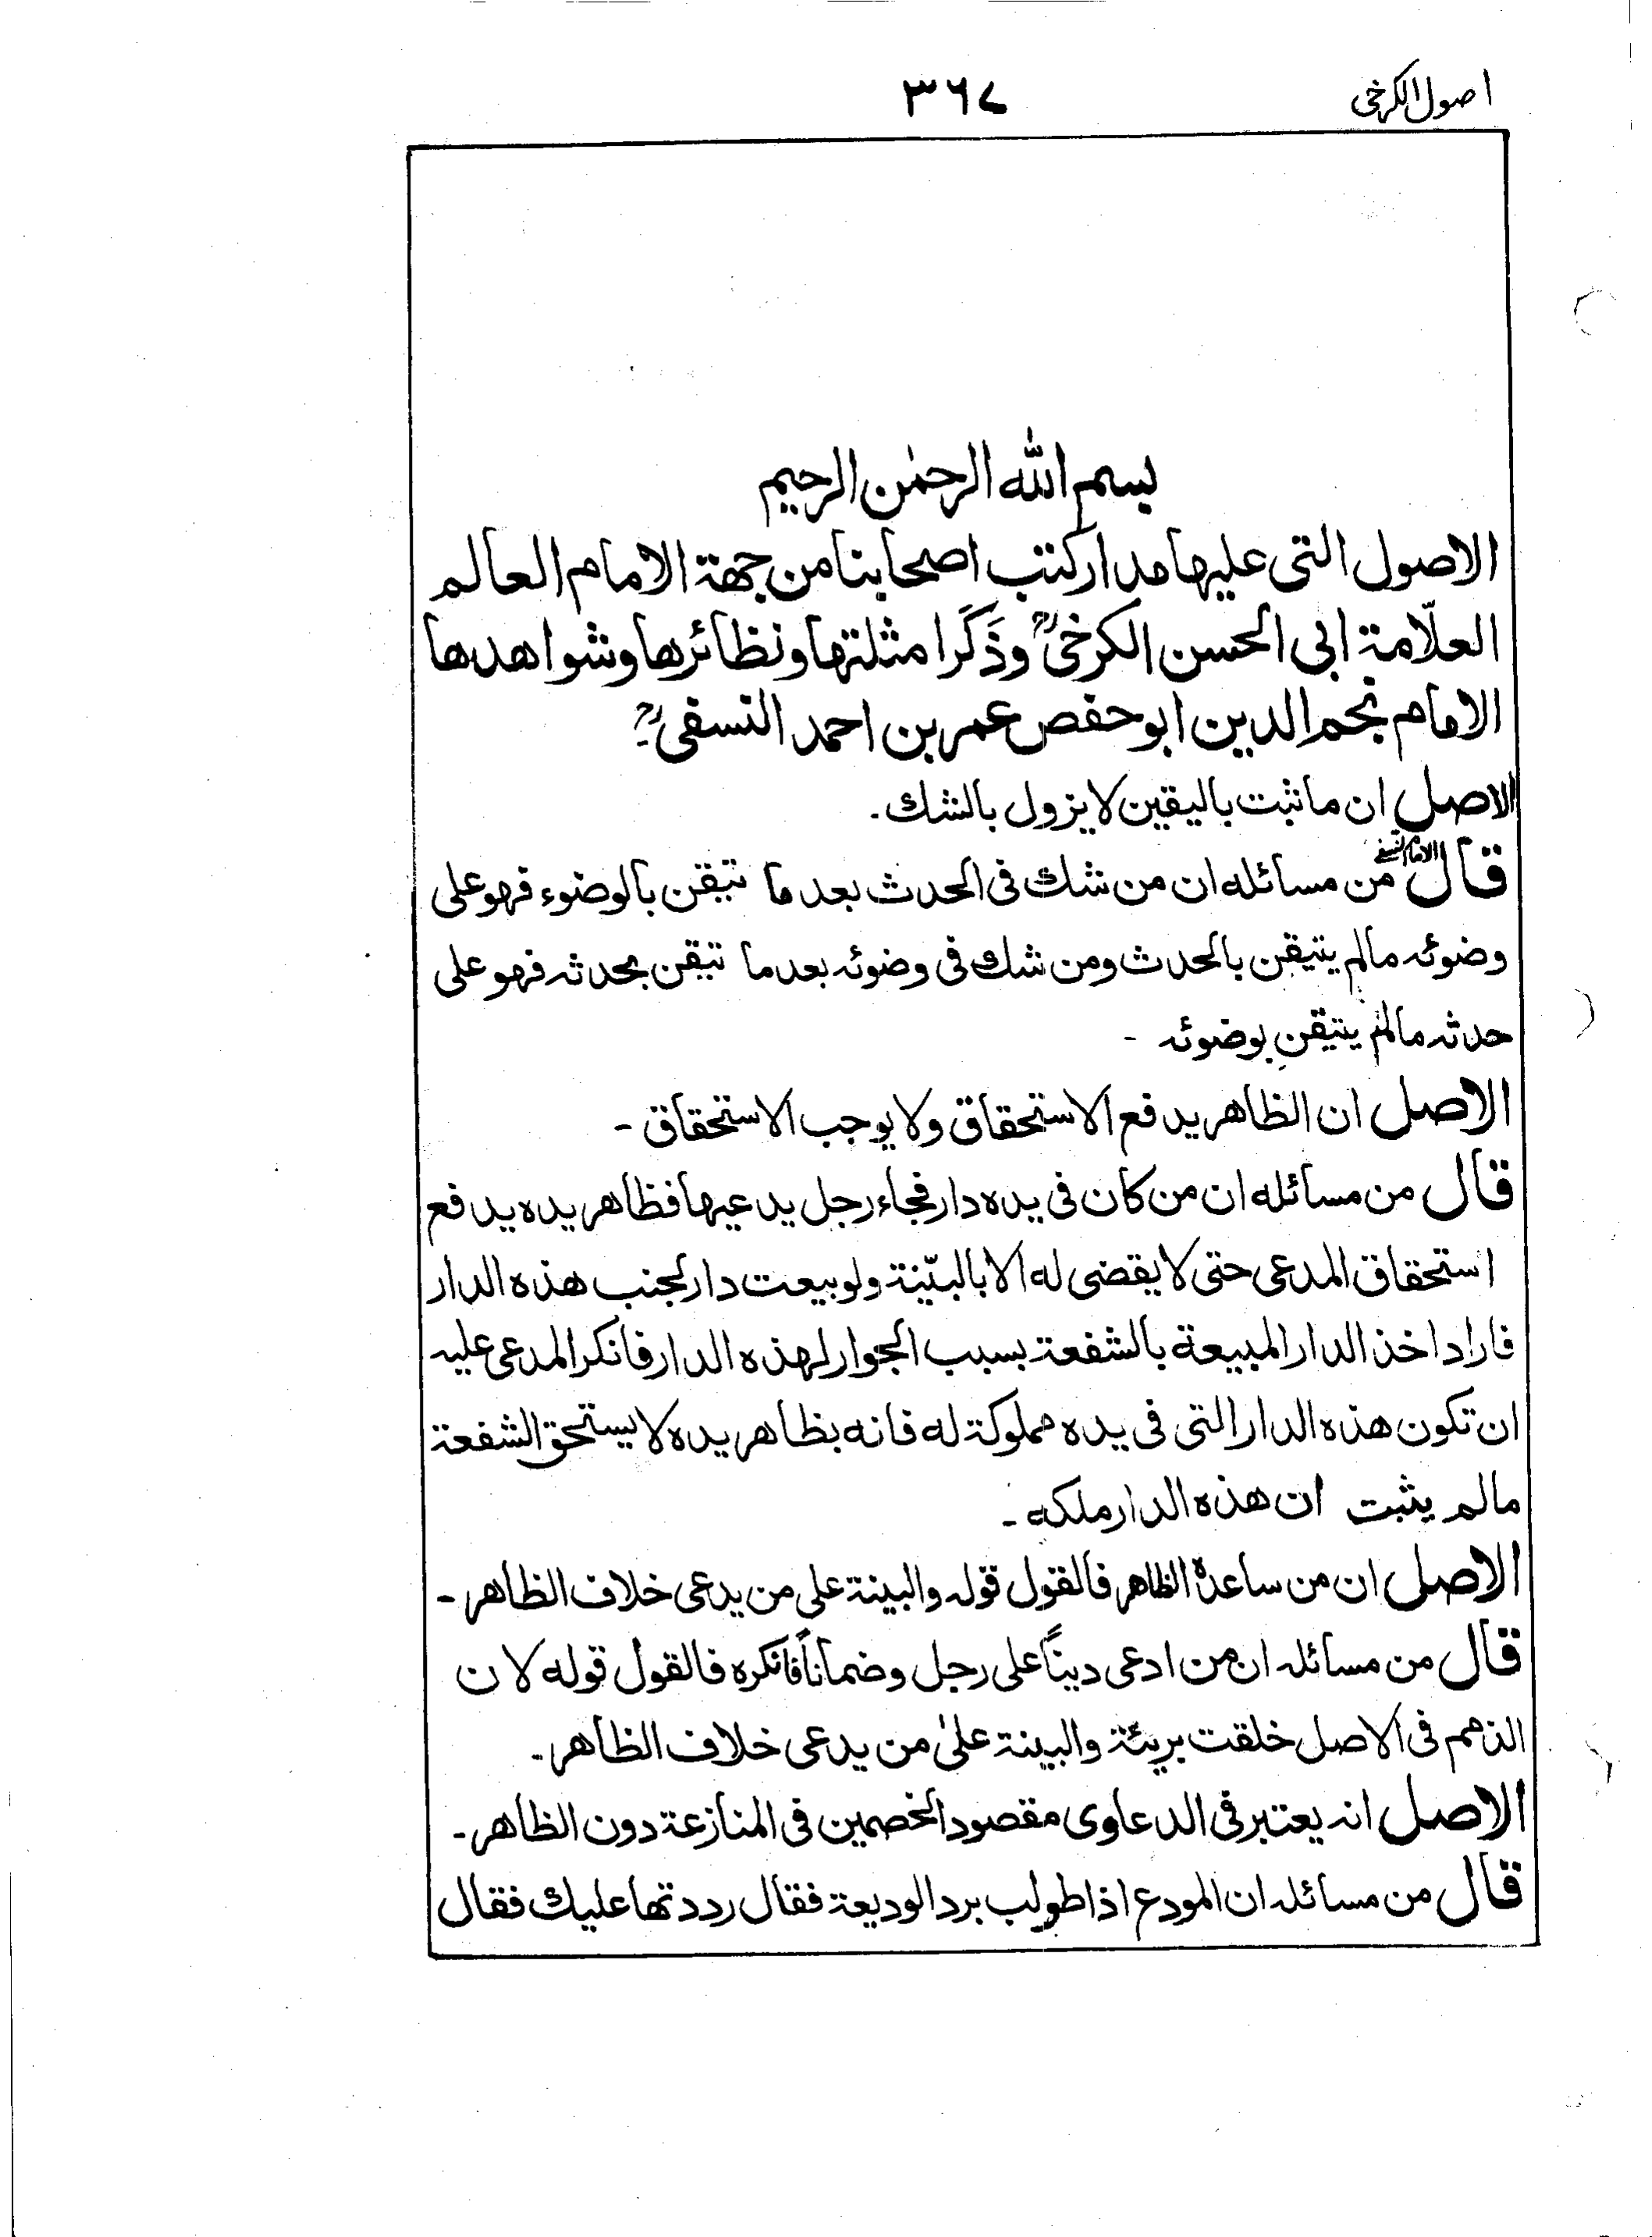 اصول الكرخى
٣٦٧
بسم الله الرحمٰن الرحيم
الاصول التى عليها مدار كتب اصحابنا من جهة الامام العالم
العلّامة ابى الحسن الكرخىؒ وذَكَرَ امثلتها ونظائرها وشواهدها
الامام نجم الدين ابو حفص عمر بن احمد النسفىؒ
الاصل ان ما ثبت باليقين لا يزول بالشك.
قال الامام النسفى من مسائله ان من شك فى الحدث بعد ما تيقن بالوضوء فهو على
وضوئه مالم يتيقن بالحدث ومن شك فى وضوئه بعد ما تيقن بحدثه فهو على
حدثه مالم يتيقن بوضوئه -
الاصل ان الظاهر يدفع الاستحقاق ولا يوجب الاستحقاق -
قال من مسائله ان من كان فى يده دار فجاء رجل يدعيها فظاهر يده يدفع
استحقاق المدعى حتى لا يقضى له الا بالبيّنة ولو بيعت دار لجنب هذه الدار
فاراد اخذ الدار المبيعة بالشفعة بسبب الجوار لهذه الدار فانكر المدعى عليه
ان تكون هذه الدار التى فى يده مملوكة له فانه بظاهر يده لا يستحق الشفعة
مالم يثبت ان هذه الدار ملكه -
الاصل ان من ساعده الظاهر فالقول قوله والبينة على من يدعى خلاف الظاهر -
قال من مسائله ان من ادعى ديناً على رجل وضماناً فانكره فالقول قوله لان
الذمم فى الاصل خلقت بريئة والبينة علىٰ من يدعى خلاف الظاهر -
الاصل انه يعتبر فى الدعاوى مقصود الخصمين فى المنازعة دون الظاهر -
قال من مسائله ان المودع اذا طولب برد الوديعة فقال رددتها عليك فقال